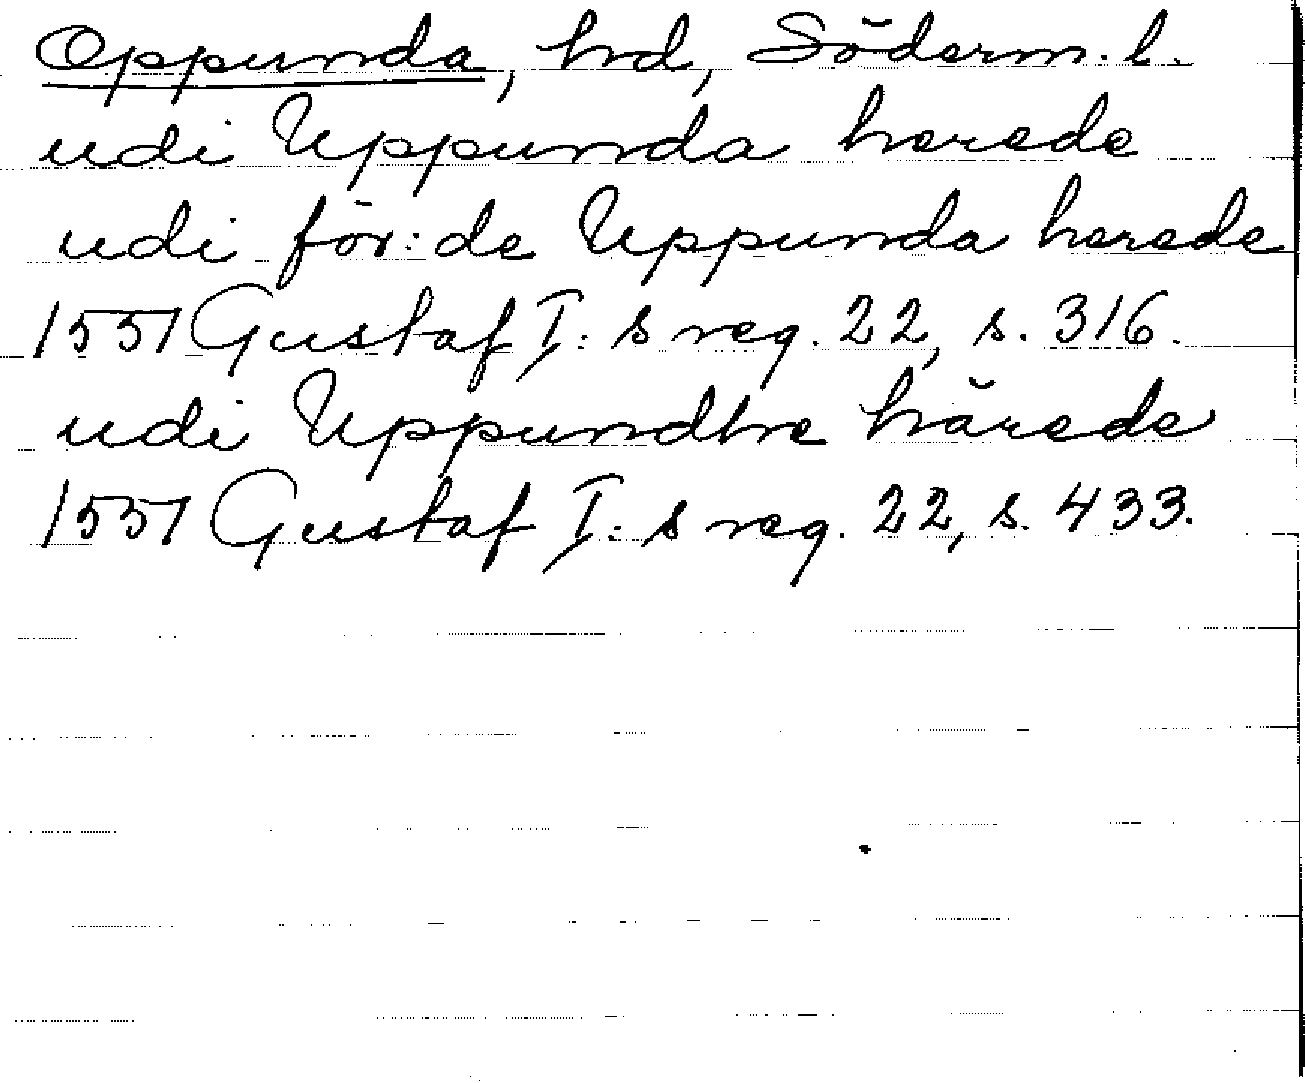 Oppunda, hd, Söderm. l.
udi Uppunda herede
udi för:de Uppunda herede
1551 Gustaf I:s reg. 22, s. 316.
udi Uppundhe härede
1551 Gustaf I:s reg. 22, s. 433.